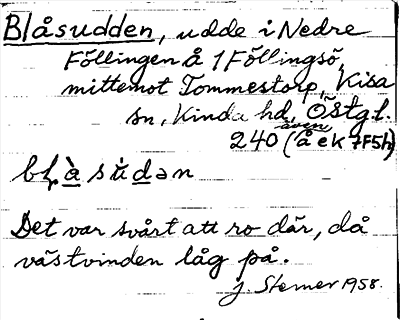 Blåsudden, udde i Nedre
Föllingen å 1 Föllingsö,
mittemot Tommestorp, Kisa
sn, Kinda hd, Östg.l.
240 (även å ek 7F5h)
Det var svårt att ro där, då
västvinden låg på.
J. Sterner 1958.